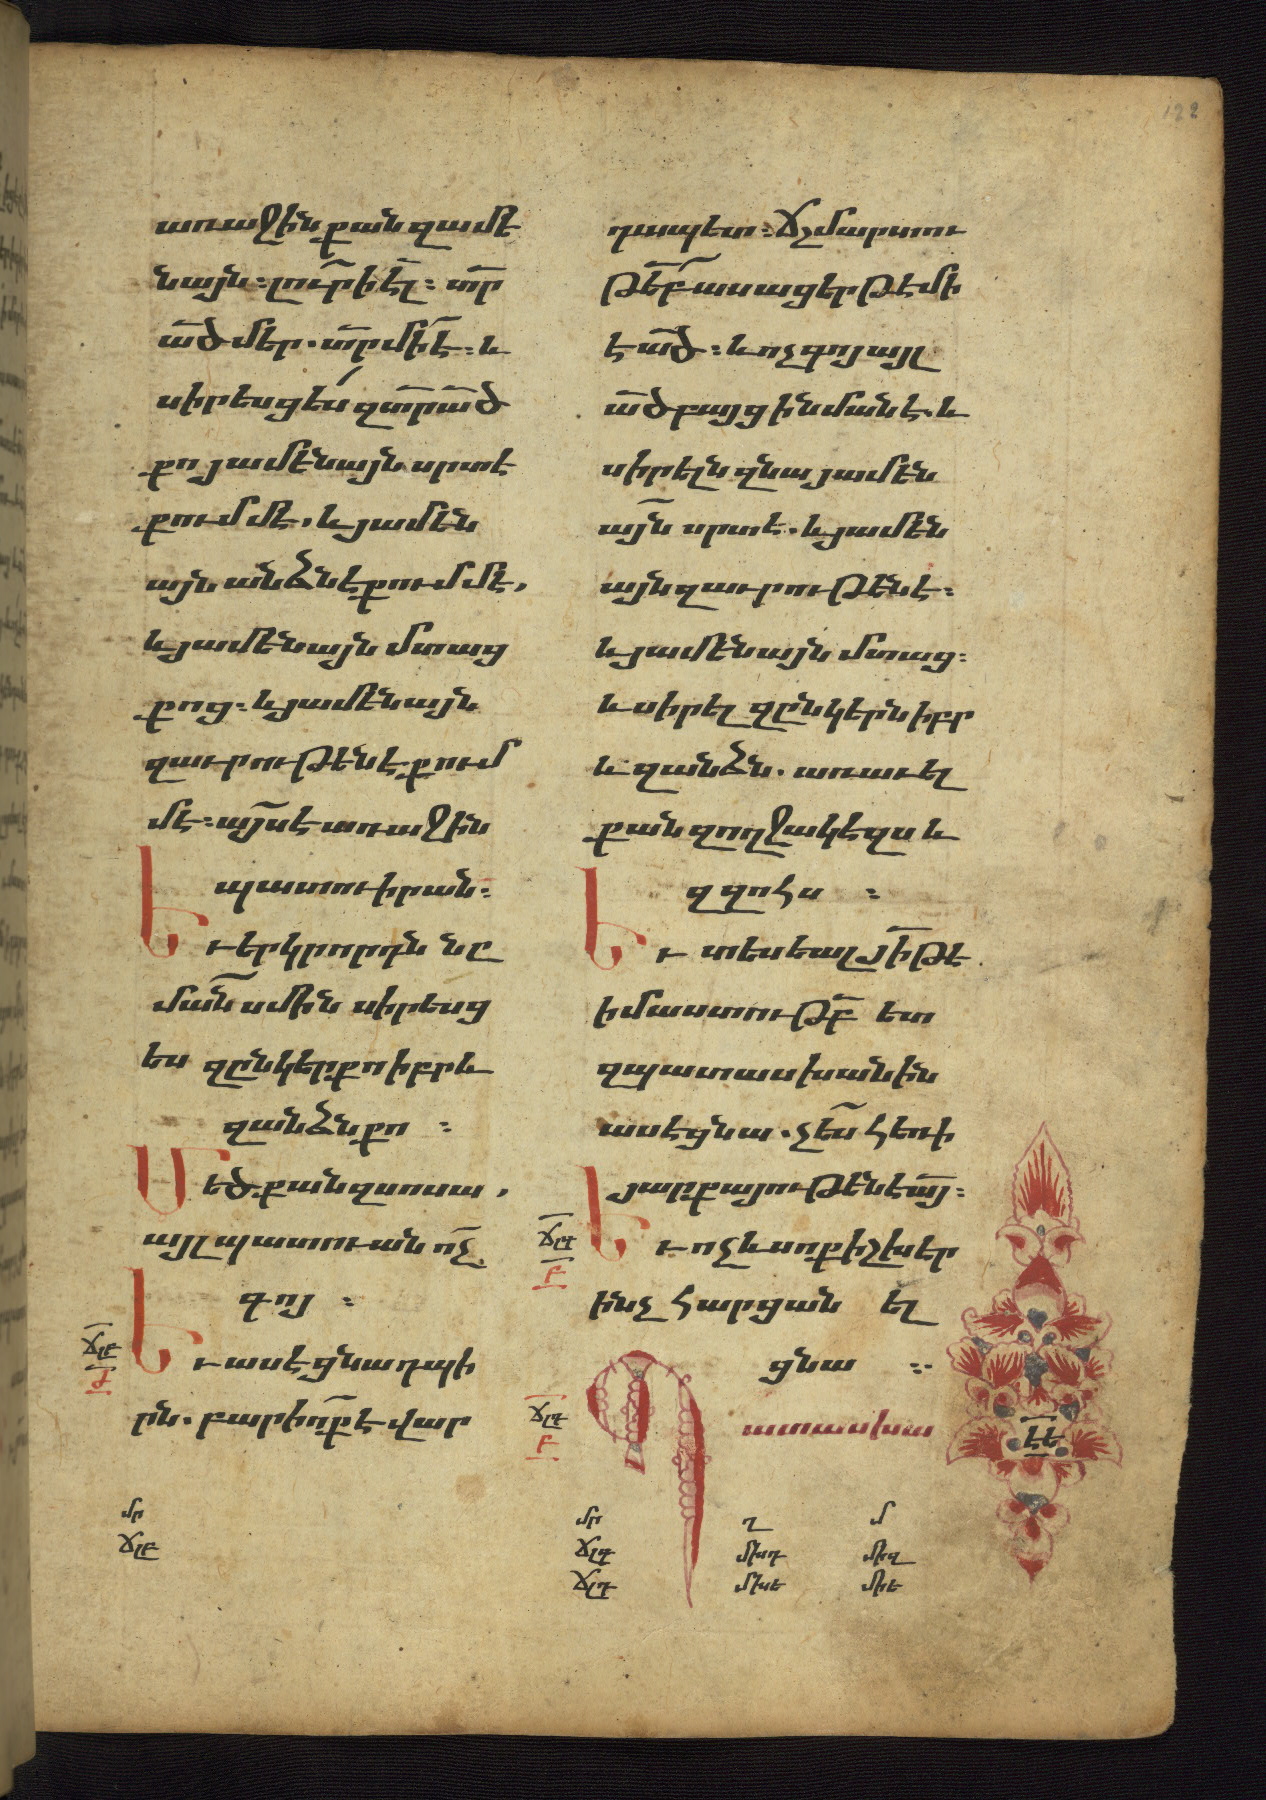 122
առաջին քան զամե
նայն ։ լո՛ւր իէ̅լ ։ տ̅ր
ա̅ծ մեր . տ̅ր մի է̅ ։ և
սիրեսցե՛ս զտ̅ր ա̅ծ
քո յամենայն սրտէ
քումմէ , և յամեն
այն անձնէ քումմէ ,
և յամենայն մտաց
քոց ։ և յամենայն
զաւրութենէ քում
մէ ։ այս է առաջին
պատուիրան ։
Եւ երկրորդն նը
ման սմին սիրեսց
ես զընկեր քո իբրև
զանձն քո ։
Մեծ քան զսոսա ,
այլ պատուան ոչ
գոյ ։
Եւ ասէ ցնա դպի
րն . բարիոք է վար
դապետ ։ ճշմարտու
թե̅բ ասացեր թէ մի
է ա̅ծ ։ և ոչ գոյ այլ
ա̅ծ բայց ինմանէ . և
սիրելն զնա յամեն
այն սրտէ . և յամեն
այն զաւրութենէ ։
և յամենայն մտաց ։
և սիրել զընկերն իբր
և զանձն . առաւել
քան զողջակէզս և
զզոհս ։
Եւ տեսեալ յի̅ թէ
իմաստութ̅բ ետ
զպատասխանին
ասէ ցնա . չես հեռի
յարքայութենէ ա̅յ ։
Եւ ոչ ևս ոք իշխեր
ինչ հարցան ել
ցնա ։
Պատասխա
ճլբ
ժ
ճլգ
բ
ճլդ
բ
էե
մր
ճլբ
մր
ճլգ
ճլդ
ղ
մխդ
մխե
մ
միզ
միե